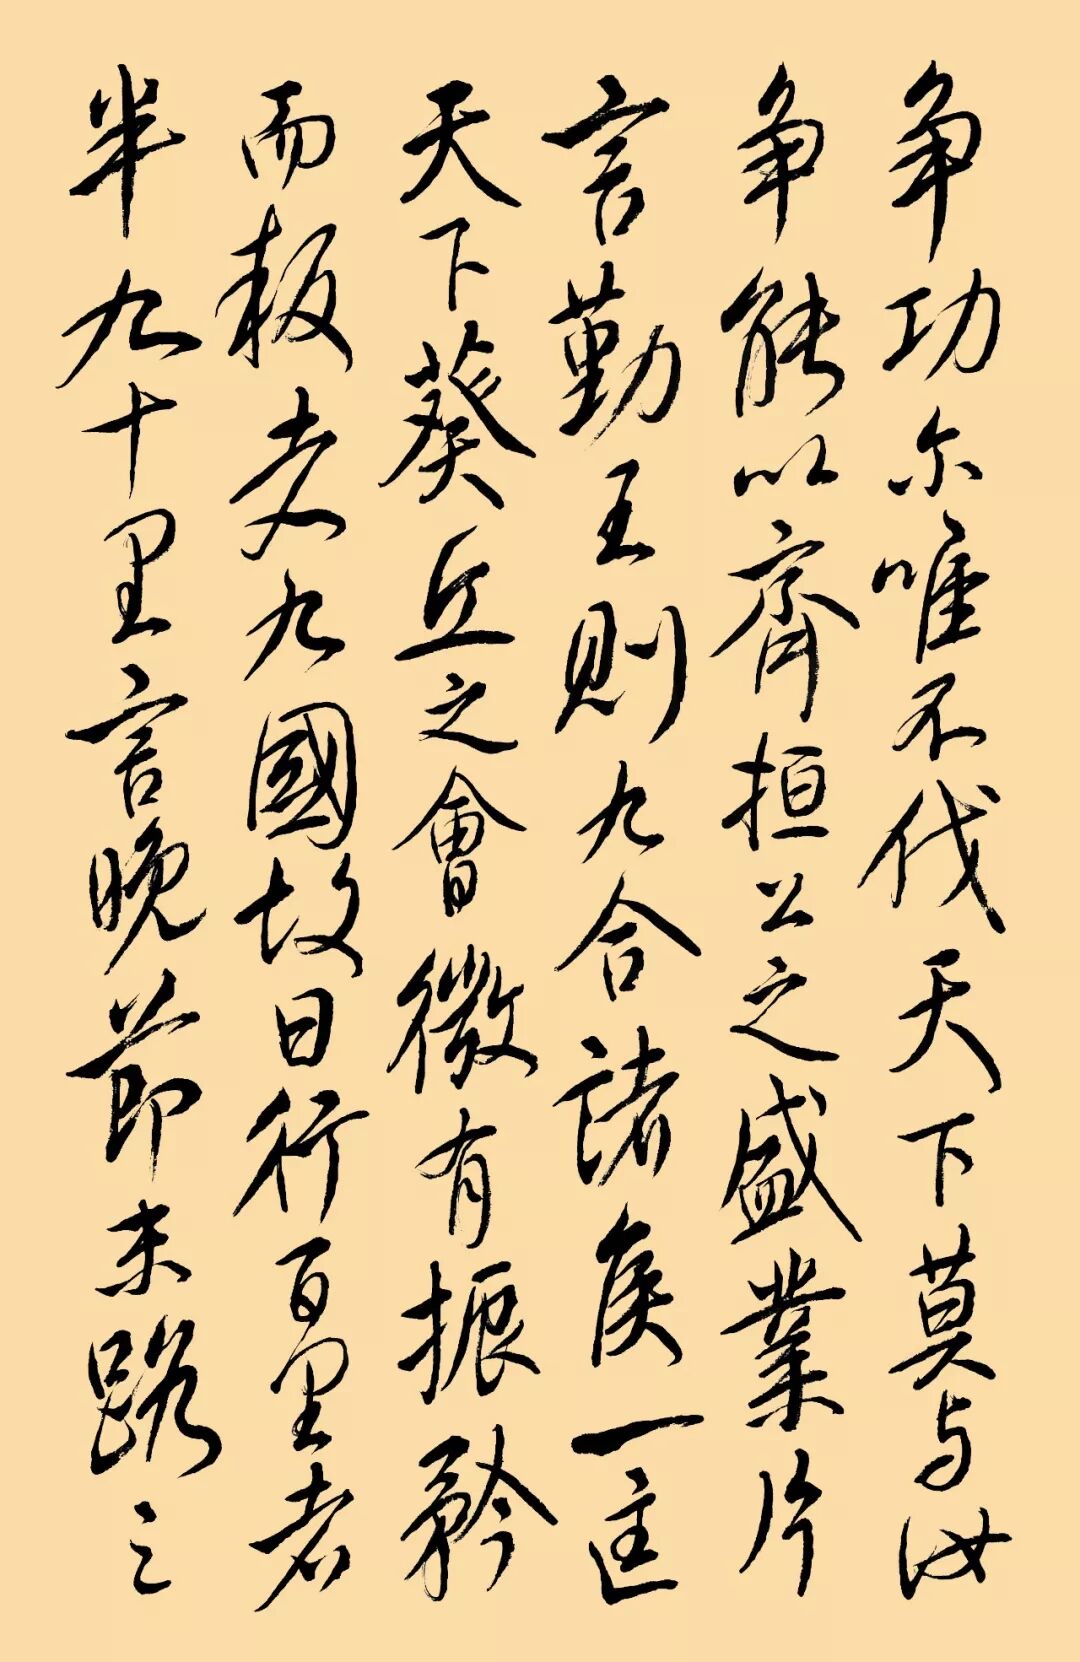 争功尔唯不伐天下莫与汝
争能以齊桓公之盛業片
言勤王則九合諸侯一匡
天下葵丘之會微有振矜
而叛者九國故曰行百里者
半九十里言晚節末路之